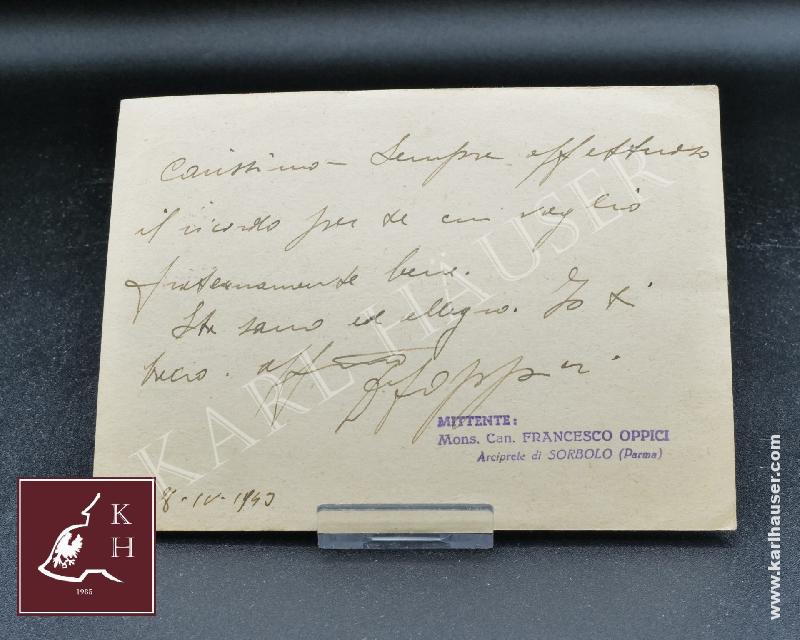 Carissimo - Sempre affettuoso
il ricordo per te cui voglio
fraternamente bene.
Sta sano ed allegro. Io ti
bacio. aff
MITTENTE:
Mons. Can. FRANCESCO OPPICI
Arciprete di SORBOLO (Parma)
8-IV-1943
KARL HÄUSER
K
H
1985
www.karlhauser.com